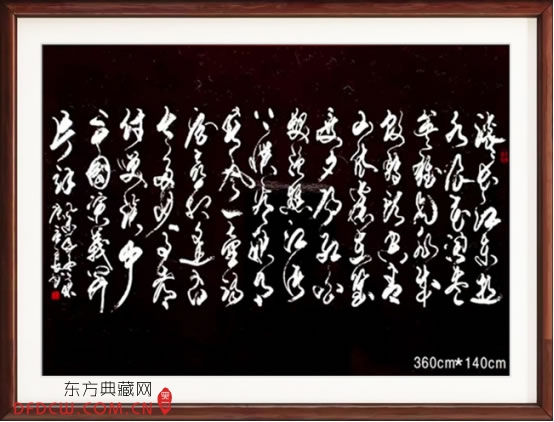 滚滚长江东逝
水浪花淘尽
英雄是非成
败转头空青
山依旧在几
度夕阳红白
发渔樵江渚
上惯看秋月
春风一壶浊
酒喜相逢古
今多少事都
付笑谈中
三国演义开
片词
360cm*140cm
东方典藏网
DFDCW.COM.CN